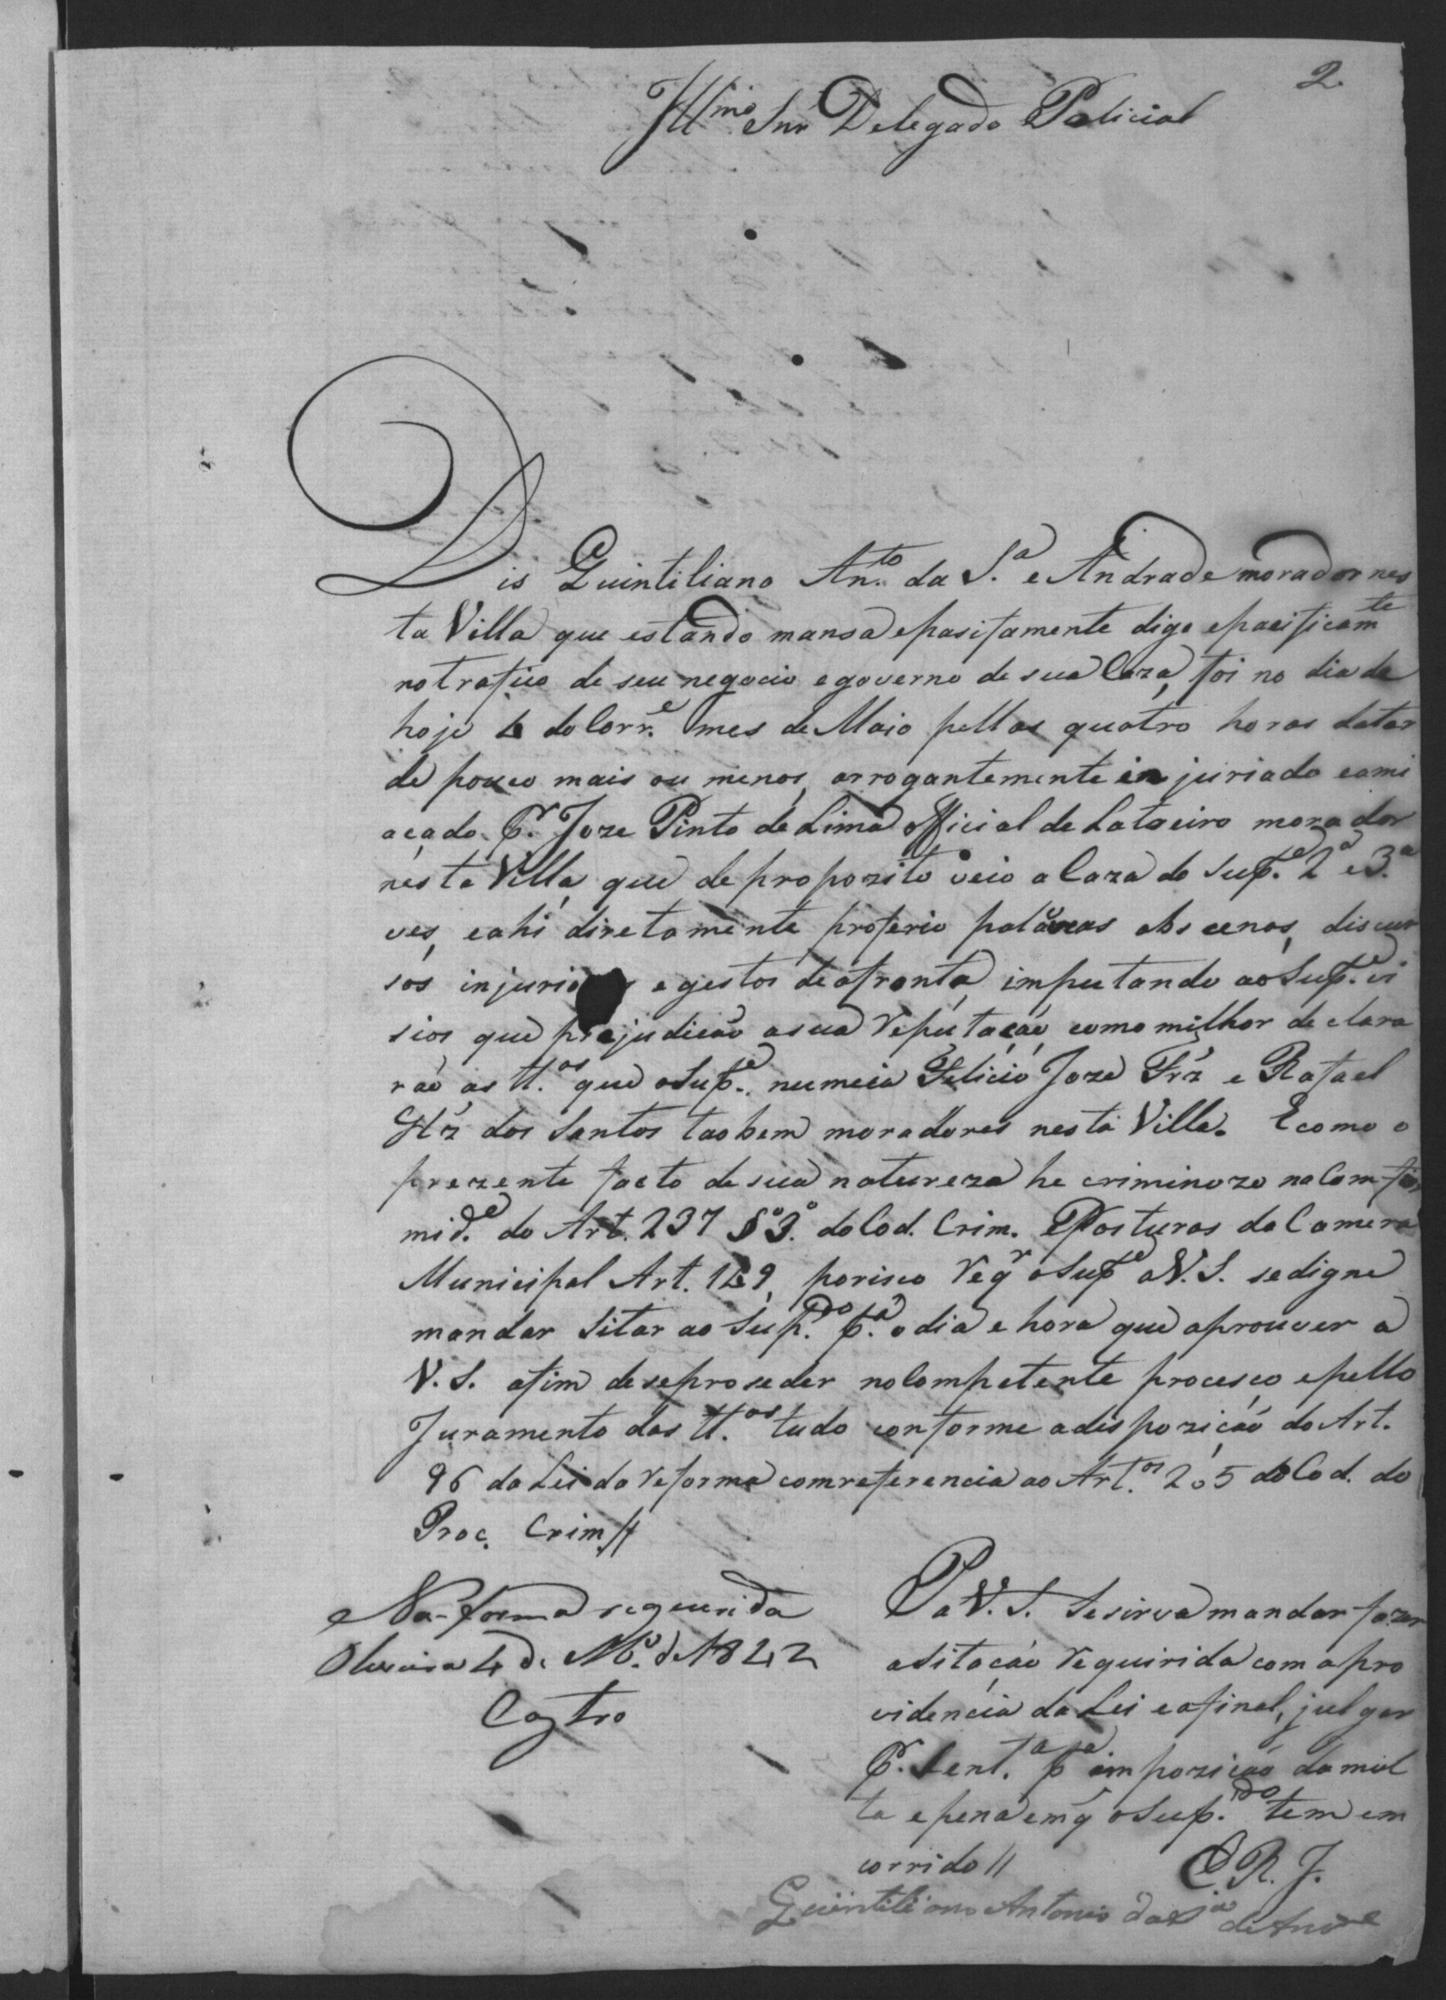 2.
Illmo Snr Delegado Policial
Dis Quintiliano Anto. da S.a e Andrade morador nes
ta Villa que estando mansa epasifamente digo epacificamte
notrafico de seu negocio egoverno de sua Caza, foi no dia de
hoje 4 do Corr.e mes de Maio pellas quatro horas datar
de pouco mais ou menos, arrogantemente injuriado eami
açado P.r Joze Pinto de Lima Official de Latoeiro morador
nesta Villa, que de propozito veio a Caza do Sup.e 2a e 3.a
ves, eahi diretamente proferio palavras obscenas, discur
sos injurio s egestos deafronta, imputando aoSup.e vi
sios que prejudicão asua reputação como milhor declara
rão as tt.as que oSup.e numeia Felicio Joze Frz e Rafael
Glz dos Santos taobem moradores nesta Villa. Ecomo o
prezente facto de sua natureza he criminozo naComfor
mid.e do Art. 237 §o 3.o do Cod. Crim. EPosturas da Camera
Municipal Art. 149, porisco reqr oSupe aV.S. sedigne
mandar Sitar ao Sup.do p.a o dia e hora que aprouver a
V.S. afim deseproseder noCompetente procesço epello
Juramento das tt.as tudo conforme adispozição do Art.
96 da Lei da reforma comreferencia ao Art.os 205 do Cod. do
Proc. Crim.//
Na forma requerida
Oliveira 4 de Mo. de 1842
Castro
Pa V.S. Sesirva mandar fazer
aSitação requirida com apro
videncia da Lei eafinal, julgar
P.r Sent.a pa impozição da mul
ta epena emq oSup.do tem em
corrido //
E. R. J.
Quintiliano Antonio da Sa de Andre